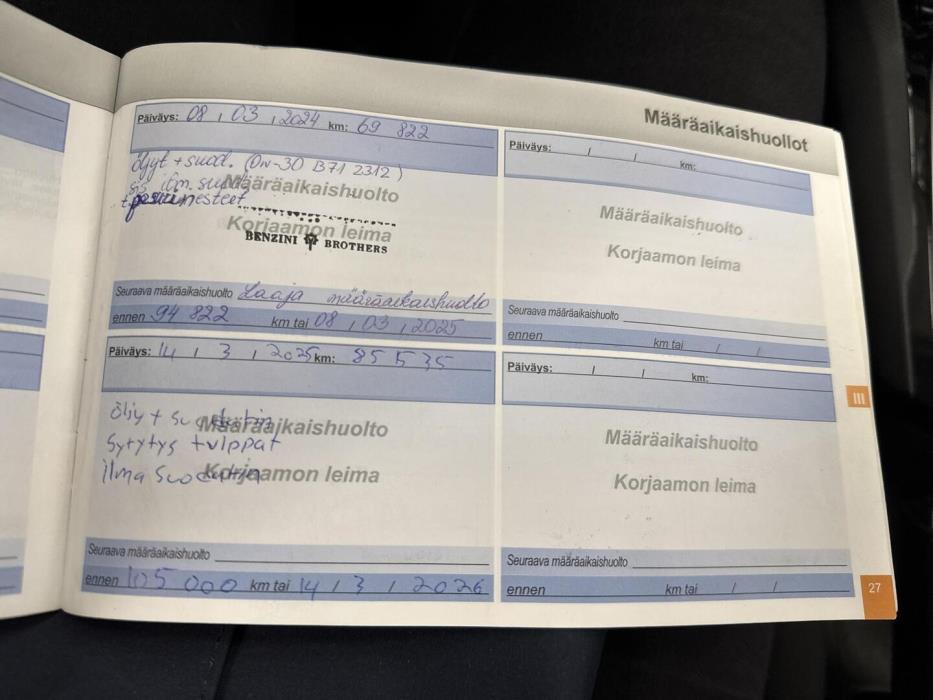 Määräaikaishuollot
Päiväys: 08 / 03 / 2024 km: 69 822
öljyt + suod. (0W-30 B71 2312)
sis ilm. suod.
Määräaikaishuolto
+ nesteet
Korjaamon leima
BENZINI BROTHERS
Seuraava määräaikaishuolto Laaja määräaikaishuolto
ennen 94 822 km tai 08 / 03 / 2025
Päiväys: 14 / 3 / 2025 km: 85 535
öljy + suodatin
Määräaikaishuolto
Sytytys tulppat
ilma Suodatin
Korjaamon leima
Seuraava määräaikaishuolto
ennen 105 000 km tai 14 / 3 / 2026
Päiväys: / / km:
Määräaikaishuolto
Korjaamon leima
Seuraava määräaikaishuolto
ennen km tai / /
Päiväys: / / km:
Määräaikaishuolto
Korjaamon leima
Seuraava määräaikaishuolto
ennen km tai / /
III
27